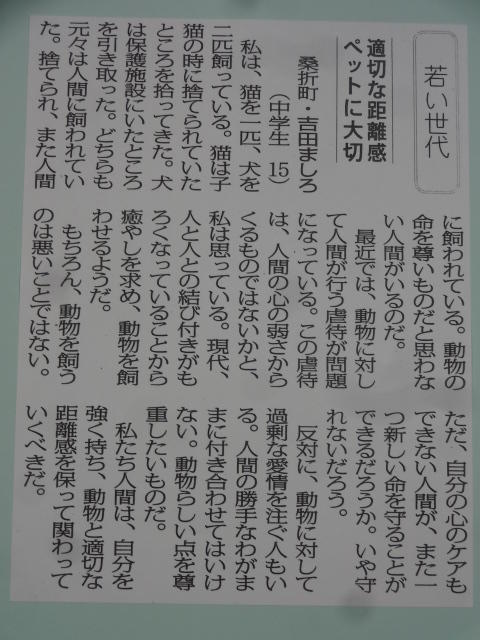 若い世代
適切な距離感
ペットに大切
桑折町・吉田ましろ
（中学生　15）
私は、猫を一匹、犬を
二匹飼っている。猫は子
猫の時に捨てられていた
ところを拾ってきた。犬
は保護施設にいたところ
を引き取った。どちらも
元々は人間に飼われてい
た。捨てられ、また人間
に飼われている。動物の
命を尊いものだと思わな
い人間がいるのだ。
最近では、動物に対し
て人間が行う虐待が問題
になっている。この虐待
は、人間の心の弱さから
くるものではないかと、
私は思っている。現代、
人と人との結び付きがも
ろくなっていることから
癒やしを求め、動物を飼
わせるようだ。
もちろん、動物を飼う
のは悪いことではない。
ただ、自分の心のケアも
できない人間が、また一
つ新しい命を守ることが
できるだろうか。いや守
れないだろう。
反対に、動物に対して
過剰な愛情を注ぐ人もい
る。人間の勝手なわがま
まに付き合わせてはいけ
ない。動物らしい点を尊
重したいものだ。
私たち人間は、自分を
強く持ち、動物と適切な
距離感を保って関わって
いくべきだ。